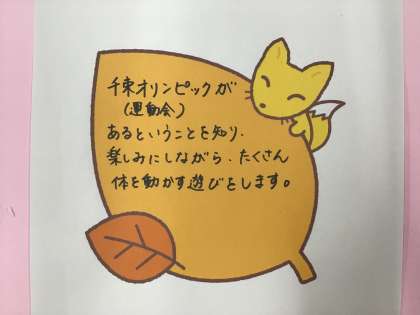 千束オリンピックが
(運動会)
あるということを知り、
楽しみにしながら、たくさん
体を動かす遊びをします。